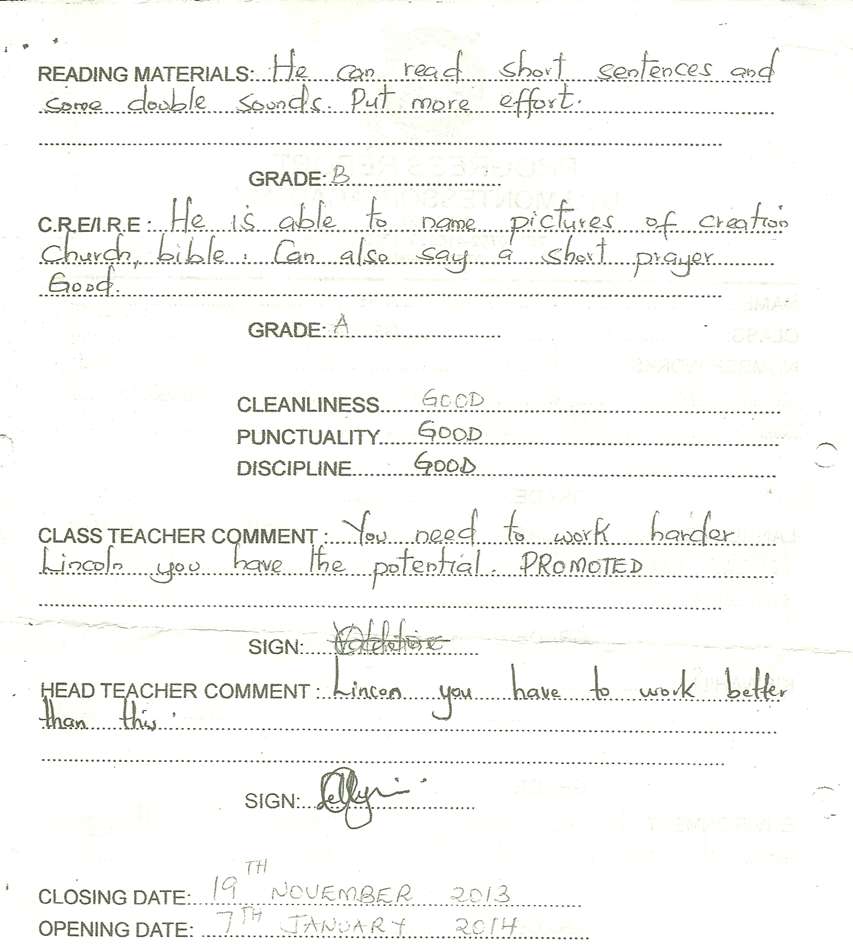 READING MATERIALS: He can read short sentences and
some double sounds. Put more effort.
GRADE: B
C.R.E/I.R.E : He is able to name pictures of creation
Church, bible. Can also say a short prayer
Good.
GRADE: A
CLEANLINESS GOOD
PUNCTUALITY GOOD
DISCIPLINE GOOD
CLASS TEACHER COMMENT : You need to work harder
Lincoln you have the potential. PROMOTED
SIGN:
HEAD TEACHER COMMENT : Lincon you have to work better
than this.
SIGN:
CLOSING DATE: 19TH NOVEMBER 2013
OPENING DATE: 7TH JANUARY 2014